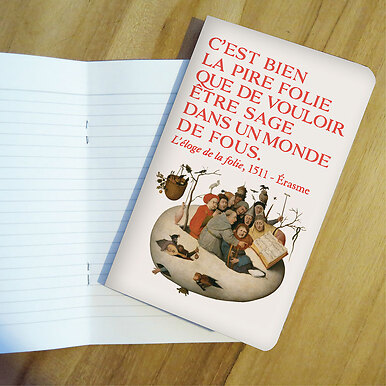 C'EST BIEN
LA PIRE FOLIE
QUE DE VOULOIR
ÊTRE SAGE
DANS UN MONDE
DE FOUS.
L'éloge de la folie, 1511 - Érasme